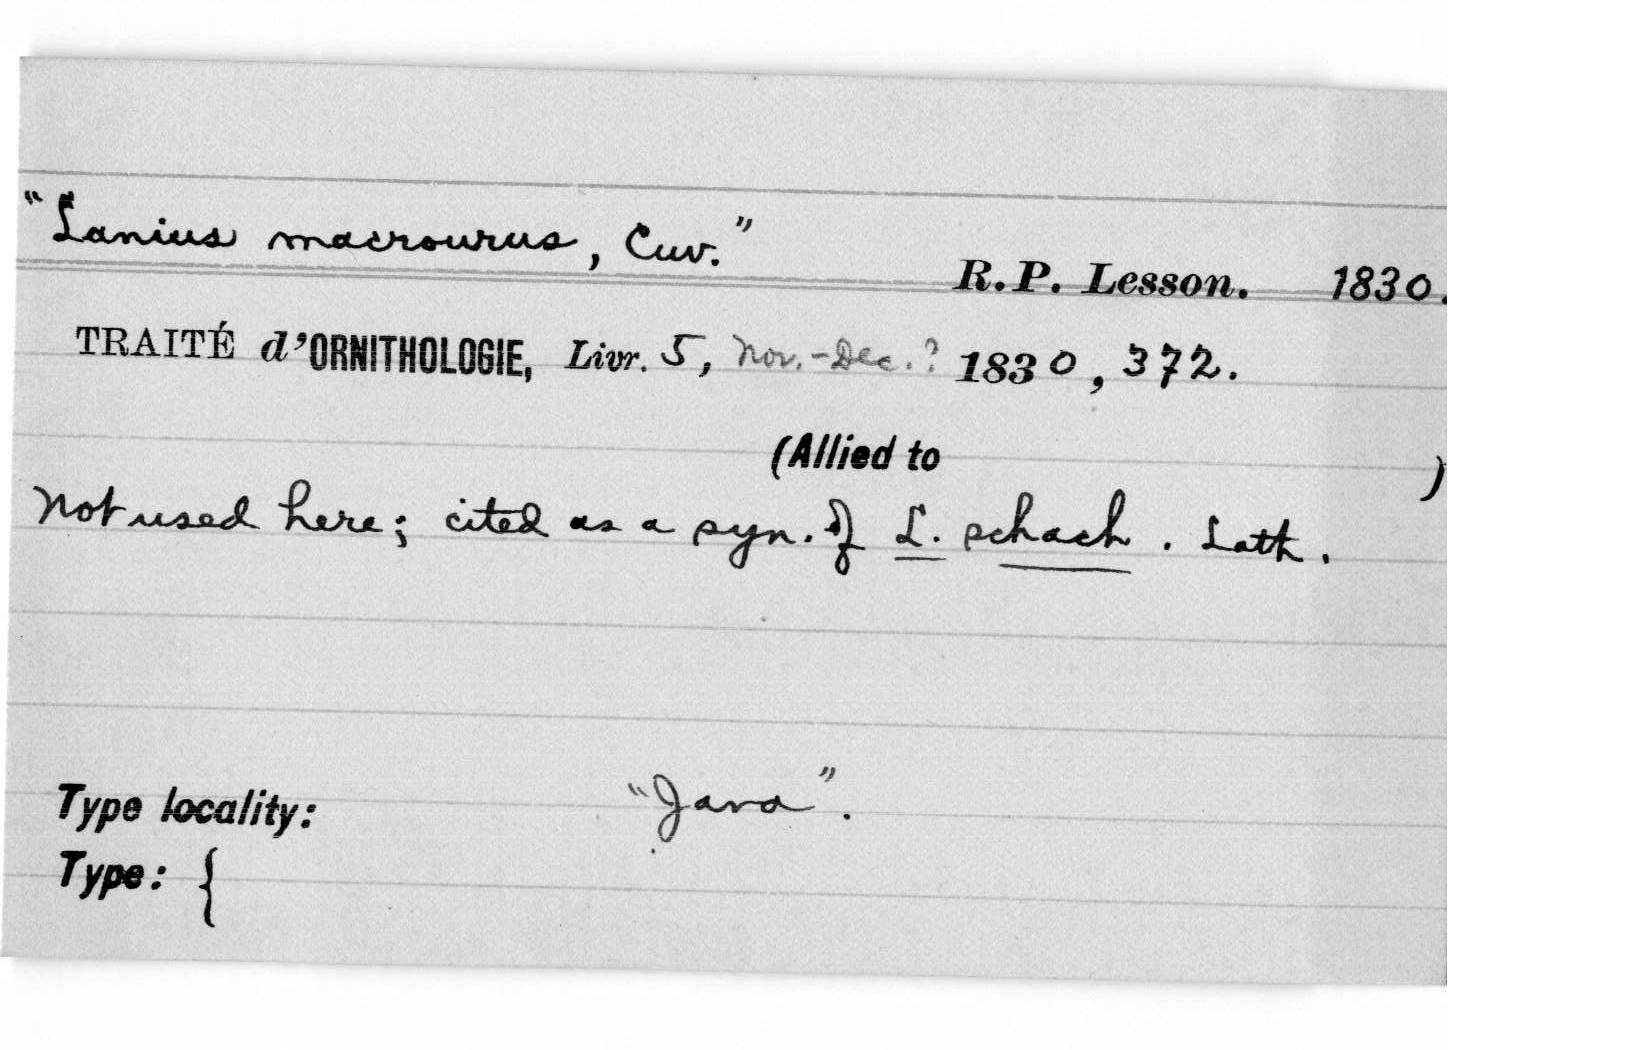 "Lanius macrourus, Cuv."
R.P. Lesson. 1830.
TRAITÉ d'ORNITHOLOGIE, Livr. 5, Nov.-Dec.? 1830, 372.
(Allied to )
Not used here; cited as a syn. of L. schach. Lath.
Type locality: "Java".
Type: {